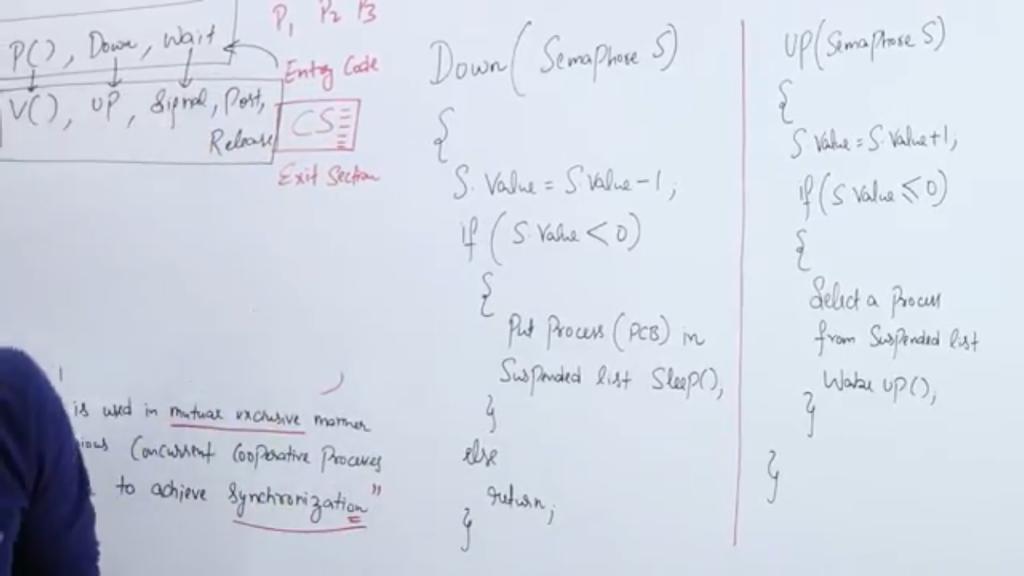 P1 P2 P3
P(), Down, Wait
V(), UP, Signal, Post,
Release
Entry Code
CS
Exit Section
is used in mutual exclusive manner
ious Concurrent Cooperative Processes
to achieve Synchronization"
Down(Semaphore S)
{
S.Value = S.Value-1;
if (S.Value < 0)
{
Put Process (PCB) in
Suspended list Sleep();
}
else
return;
}
UP(Semaphore S)
{
S.Value = S.Value+1;
if (S.Value ≤ 0)
{
Select a Process
from Suspended list
Wake UP();
}
}